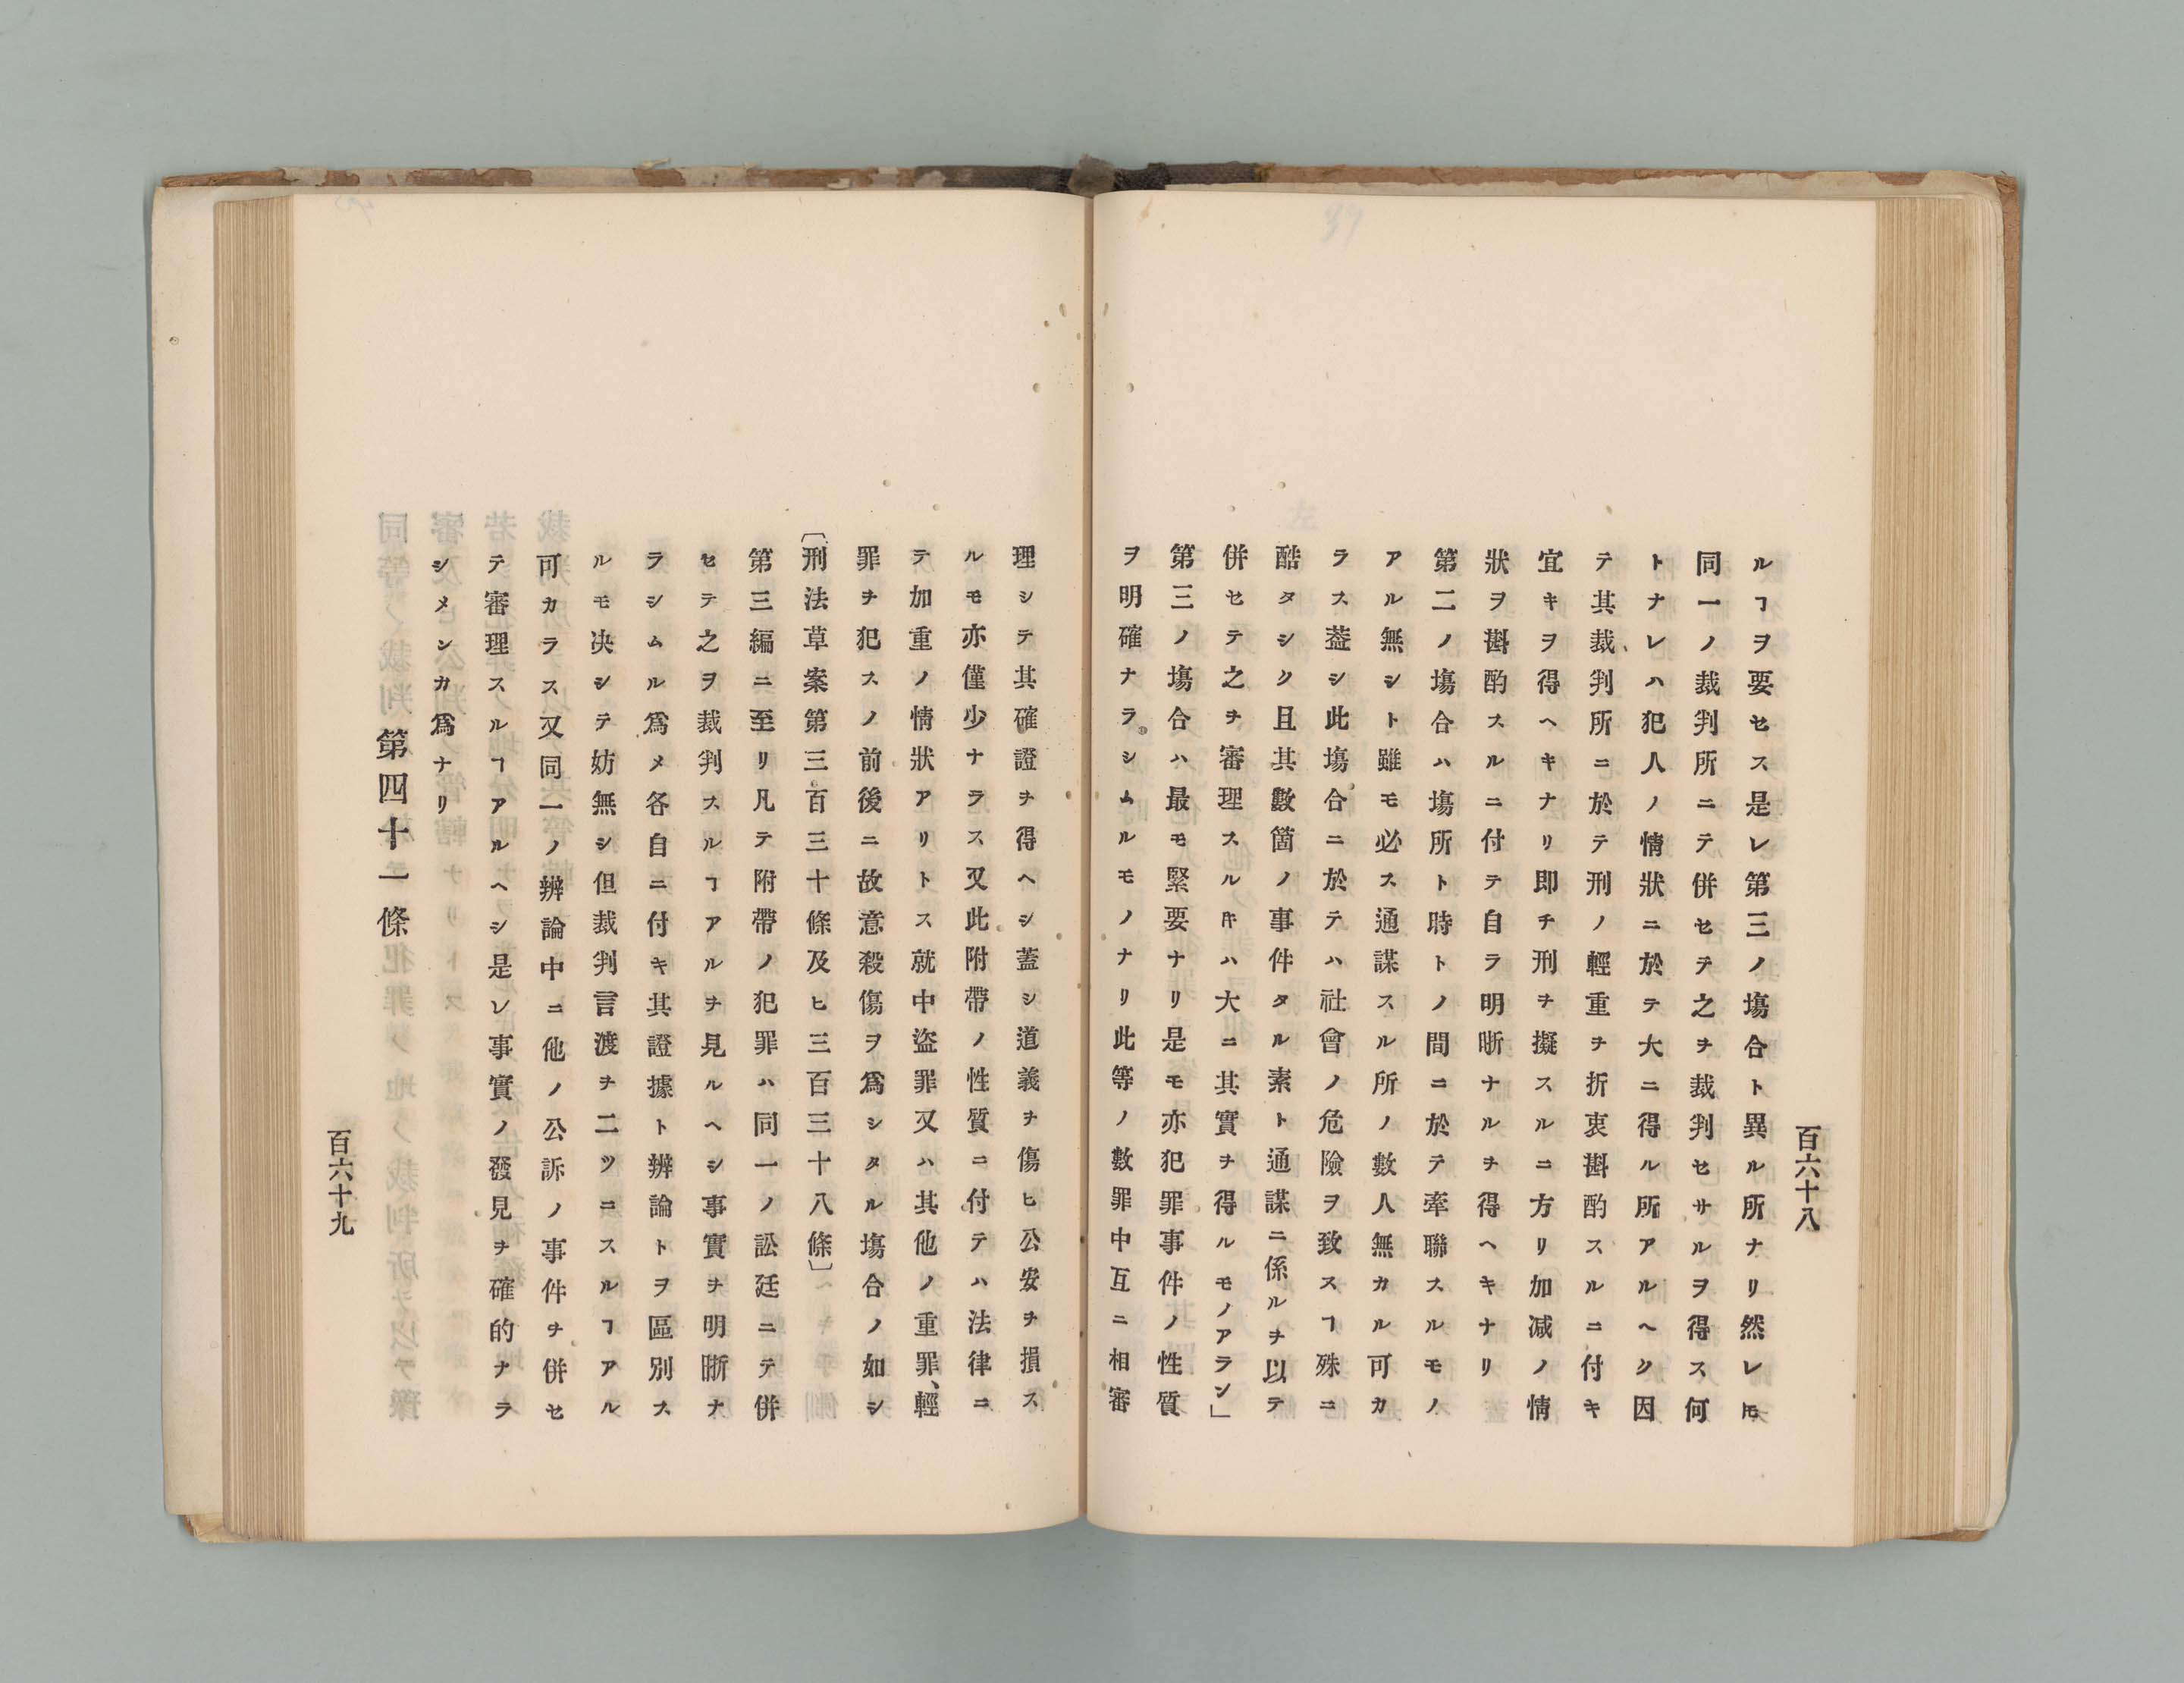 百六十八
ルヿヲ要セス是レ第三ノ塲合ト異ル所ナリ然レ𪜈
同一ノ裁判所ニテ併セテ之ヲ裁判セサルヲ得ス何
トナレハ犯人ノ情狀ニ於テ大ニ得ル所アルヘシ因
テ其裁判所ニ於テ刑ノ輕重ヲ折衷斟酌スルニ付キ
宜キヲ得ヘキナリ即チ刑ヲ擬スルニ方リ加减ノ情
狀ヲ斟酌スルニ付テ自ラ明晣ナルヲ得ヘキナリ
第二ノ塲合ハ塲所ト時トノ間ニ於テ牽聯スルモノ
アル無シト雖モ必ス通謀スル所ノ數人無カル可カ
ラス葢シ此塲合ニ於テハ社會ノ危險ヲ致スヿ殊ニ
酷タシク且其數箇ノ事件タル素ト通謀ニ係ルヲ以テ
併セテ之ヲ審理スル𪜈ハ大ニ其實ヲ得ルモノアラン」
第三ノ塲合ハ最モ緊要ナリ是モ亦犯罪事件ノ性質
ヲ明確ナラシムルモノナリ此等ノ數罪中互ニ相審
理シテ其確證ヲ得ヘシ蓋シ道義ヲ傷ヒ公安ヲ損ス
ルモ亦僅少ナラス又此附帶ノ性質ニ付テハ法律ニ
テ加重ノ情狀アリトス就中盜罪又ハ其他ノ重罪、輕
罪ヲ犯スノ前後ニ故意殺傷ヲ爲シタル塲合ノ如シ
〔刑法草案第三百三十條及ヒ三百三十八條〕
第三編ニ至リ凡テ附帶ノ犯罪ハ同一ノ訟廷ニテ併
セテ之ヲ裁判スルヿアルヲ見ルヘシ事實ヲ明晣ナ
ラシムル爲メ各自ニ付キ其證據ト辨論トヲ區別ス
ルモ决シテ妨無シ但裁判言渡ヲ二ツニスルヿアル
可カラス又同一ノ辨論中ニ他ノ公訴ノ事件ヲ併セ
テ審理スルヿアルヘシ是レ事實ノ發見ヲ確的ナラ
シメンカ爲ナリ
第四十一條
百六十九